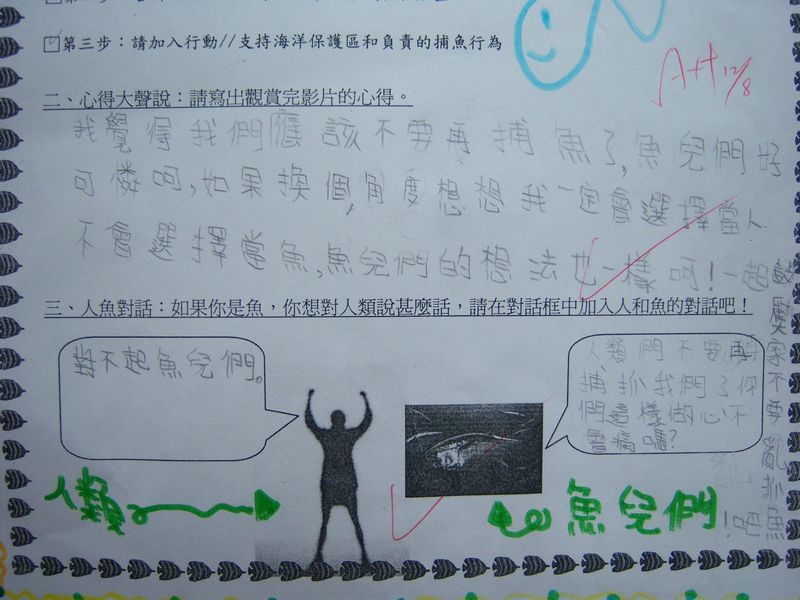 第三步：請加入行動//支持海洋保護區和負責的捕魚行為
A++ 12/8
二、心得大聲說：請寫出觀賞完影片的心得。
我覺得我們應該不要再捕魚了,魚兒們好
可憐呵,如果換個,角度想想我一定會選擇當人
不會選擇當魚,魚兒們的想法也一樣呵!一起
鼓勵大家不要亂抓魚吧!
三、人魚對話：如果你是魚，你想對人類說甚麼話，請在對話框中加入人和魚的對話吧！
對不起魚兒們。
人類們不要再
捕抓我們了你
們這樣做心不
會痛嗎?
人類
魚兒們